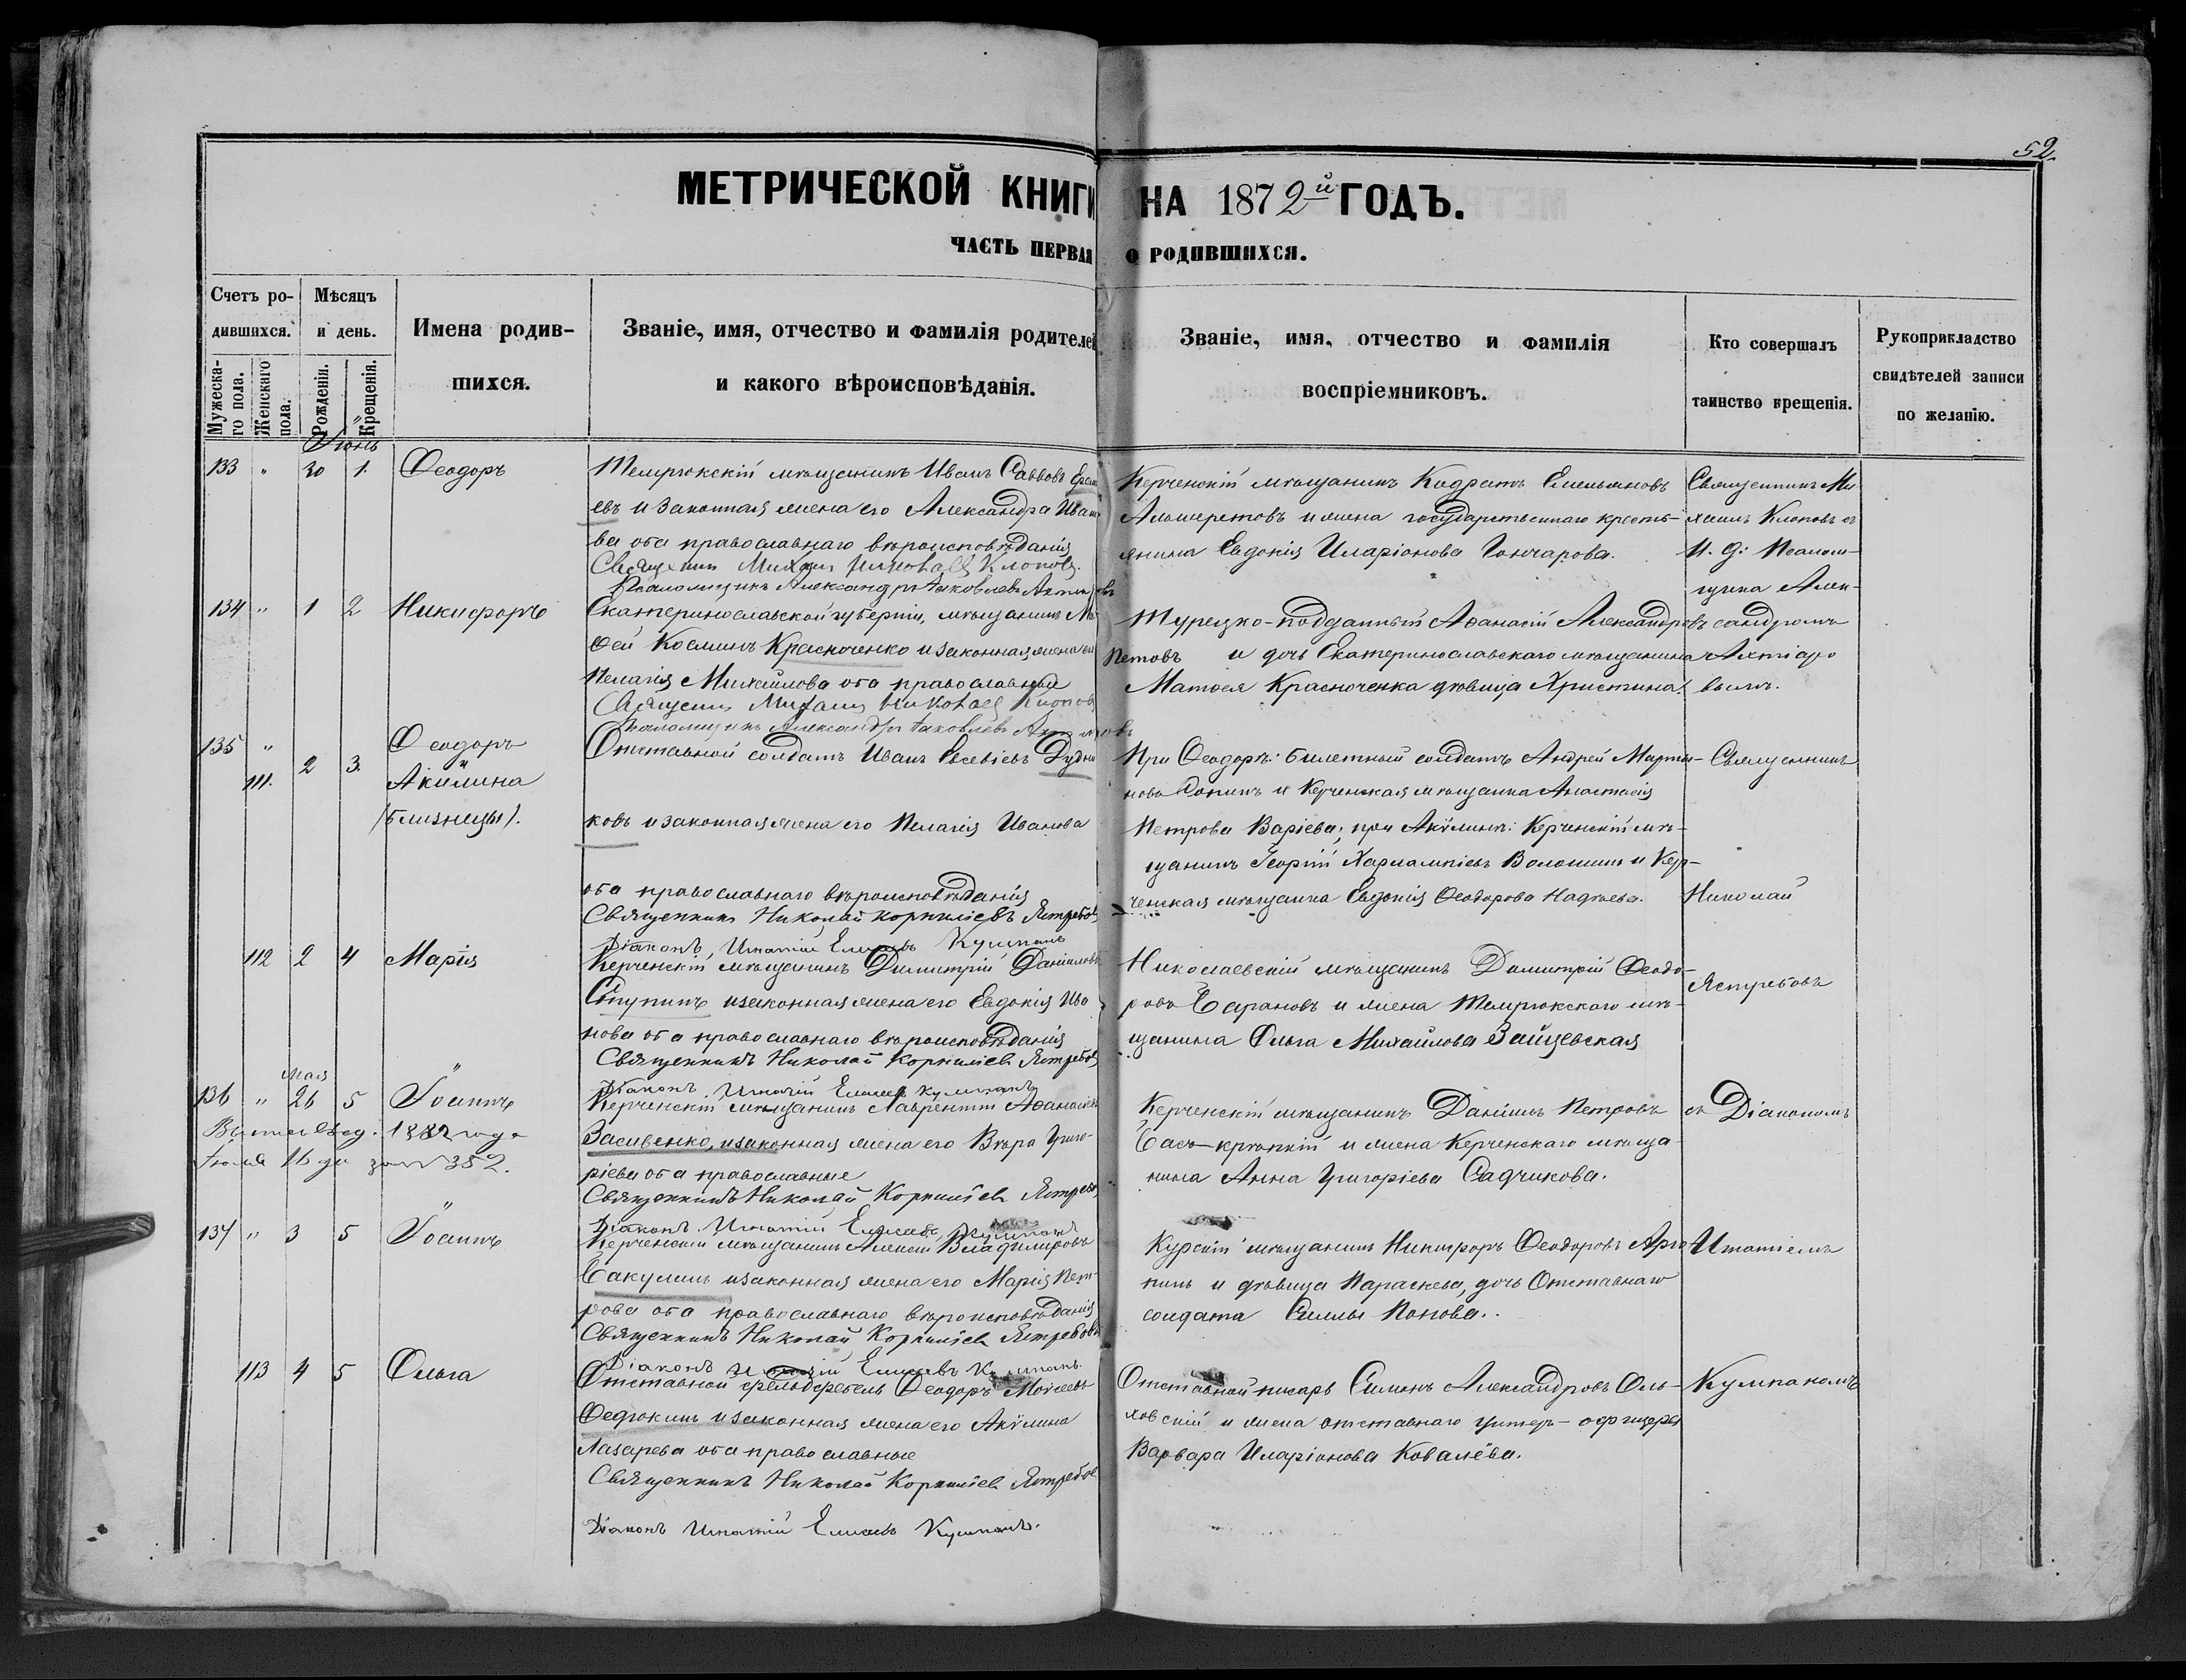 52.
МЕТРИЧЕСКОЙ КНИГИ НА 1872й ГОДЪ.
ЧАСТЬ ПЕРВАЯ О РОДИВШИХСЯ.
Счетъ ро-
дившихся.
Мужеска-
го пола.
Женскаго
пола.
Мѣсяцъ
и день.
Рожденія.
Крещенія.
Имена родив-
шихся.
Званіе, имя, отчество и фамилія родителей
и какого вѣроисповѣданія.
Званіе, имя, отчество и фамилія
воспріемниковъ.
Кто совершалъ
таинство крещенія.
Рукоприкладство
свидѣтелей записи
по желанію.
Іюнь
133 " 30 1. Ѳеодоръ
Темрюкскій мѣщанинъ Иванъ Саввовъ
евъ и законная жена его Александра Ивано
ва оба православнаго вѣроисповѣданія
Священникъ Михаилъ Николаевъ Клоповъ.
Псаломщикъ Александръ Яковлевъ
Керченскій мѣщанинъ Кодратъ Емельяновъ
и жена государственнаго кресть-
янина Евдокія Иларіонова Гончарова.
Священникъ Ми-
хаилъ Клоповъ съ
И. д: Псалом-
щика Алек-
сандромъ
Ахтіаро
вымъ.
134 " 1 2 Никифоръ
Екатеринославской губерніи, мѣщанинъ Мат
ѳей Косминъ Красноченко и законная жена его
Пелагія Михайлова оба православные
Священникъ Михаилъ Николаевъ Клоповъ
Псаломщикъ Александръ Яковлевъ
Турецко-подданный Аѳанасій Александровъ
Петовъ и дочь Екатеринославскаго мѣщанина
Матѳея Красноченка дѣвица Христина.
135 " 2 3. Ѳеодоръ
и
111. Акилина
(близнецы).
Отставной солдатъ Иванъ Евсевіевъ Дудни
ковъ и законная жена его Пелагія Иванова
оба православнаго вѣроисповѣданія
Священникъ Николай Корниліевъ Ястребовъ
Діаконъ Игнатій Елисѣевъ Кумпанъ
При Ѳеодорѣ: билетный солдатъ Андрей Марти-
новъ Сопинъ и Керченская мѣщанка Анастасія
Петрова Варіева; при Акѵлинѣ: Керченскій мѣ-
щанинъ Георгій Харлампіевъ Волошинъ и Кер-
ченская мѣщанка Евдокія Ѳеодорова Надѣева.
Священникъ
Николай
112 2 4 Марія
Керченскій мѣщанинъ Димитрій Даніиловъ
Ступинъ и законная жена его Евдокія Ива
нова оба православнаго вѣроисповѣданія
Священникъ Николай Корниліевъ Ястребовъ
Діаконъ Игнатій Елисѣевъ Кумпанъ
Николаевскій мѣщанинъ Димитрій Ѳеодо-
ровъ Барановъ и жена Темрюкскаго мѣ-
щанина Ольга Михайлова Зайцевская
Ястребовъ
Мая
136 " 26 5 Іоаннъ
1882 года
Іюля 16 дн за № 352.
Керченскій мѣщанинъ Лаврентій Аѳанасіевъ
Засивенко, и законная жена его Вѣра Григо-
ріева оба православные
Священникъ Николай Корниліевъ Ястребовъ
Діаконъ Игнатій Елисѣевъ Кумпанъ
Керченскій мѣщанинъ Даніилъ Петровъ
и жена Керченскаго мѣща-
нина Анна Григоріева Садчикова.
съ Діакономъ
137 " 3 5 Іоаннъ
Керченскій мѣщанинъ Алексій Владиміровъ
Бакулинъ и законная жена его Марія Пет-
рова оба православнаго вѣроисповѣданія
Священникъ Николай Корниліевъ Ястребовъ
Діаконъ Игнатій Елисѣевъ Кумпанъ.
Курскій мѣщанинъ Никифоръ Ѳеодоровъ
и дѣвица Параскева, дочь Отставнаго
солдата Силы Попова.
Игнатіемъ
113 4 5 Ольга
Отставной фельдфебель Ѳеодоръ Моисеевъ
Ѳедюкинъ и законная жена его Акѵлина
Лазарева оба православные
Священникъ Николай Корниліевъ Ястребовъ
Діаконъ Игнатій Елисѣевъ Кумпанъ.
Отставной писарь Симонъ Александровъ Оль-
ховскій и жена отставнаго унтеръ-офицера
Варвара Иларіонова Ковалёва.
Кумпаномъ